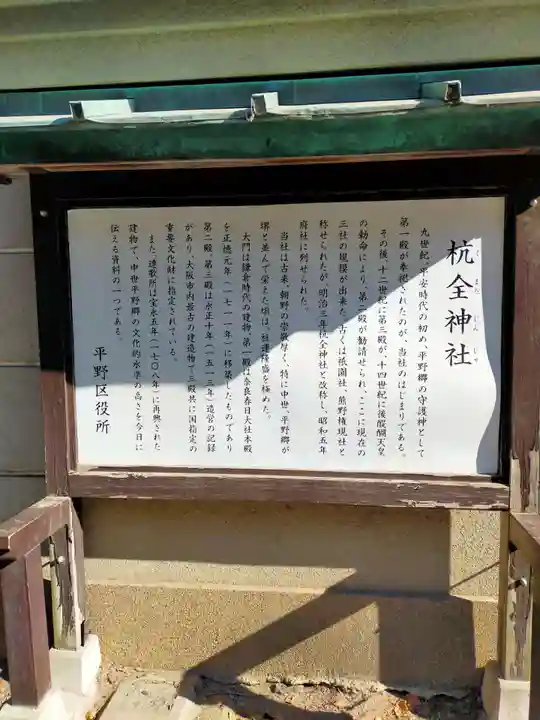 杭全神社
くまたじんじゃ
九世紀、平安時代の初め、平野郷の守護神として
第一殿が奉祀されたのが、当社のはじまりである。
その後、十二世紀に第三殿が、十四世紀に後醍醐天皇
の勅命により、第二殿が勧請せられ、ここに現在の
三社の規模が出来た。古くは祇園社、熊野権現社と
称せられたが、明治三年杭全神社と改称し、昭和五年
府社に列せられた。
当社は古来、朝野の崇敬あつく、特に中世、平野郷が
堺と並んで栄えた頃は、社運隆盛を極めた。
大門は鎌倉時代の建物、第一殿は奈良春日大社本殿
を正徳元年(一七一一年)に移築したものであり
第二殿、第三殿は永正十年(一五一三年)造営の記録
があり、大阪市内最古の建造物で三殿共に国指定の
重要文化財に指定されている。
また、連歌所は宝永五年(一七〇八年)に再興された
建物で、中世平野郷の文化的水準の高さを今日に
伝える資料の一つである。
平野区役所